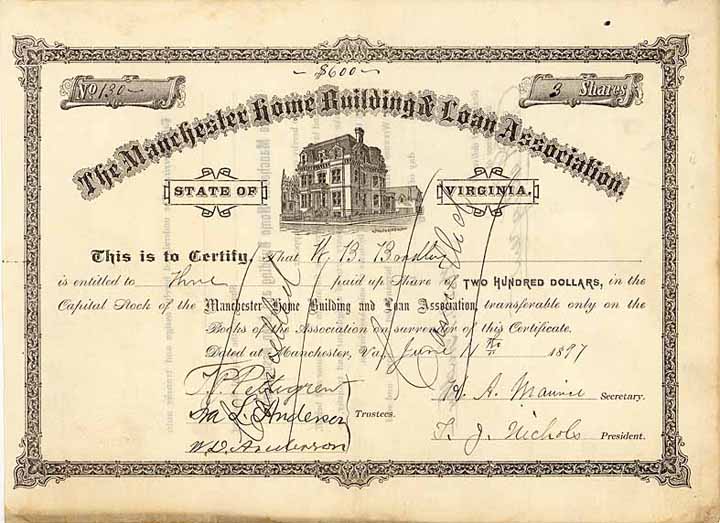 $600
No 130
3 Shares
The Manchester Home Building & Loan Association.
STATE OF
VIRGINIA.
This is to Certify, That B.
is entitled to Three paid up Share of TWO HUNDRED DOLLARS, in the
Capital Stock of the Manchester Home Building and Loan Association, transferable only on the
Books of the Association on surrender of this Certificate.
Dated at Manchester, Va., June 1897
Cancelled
Cancelled
Ira L. Anderson Trustees.
W. D. Anderson
A. Maurice Secretary.
T. J. Nichols President.